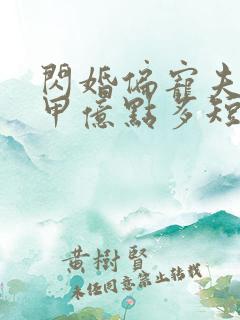 閃婚偏寵夫
甲億點多短
黃樹賢
未經同意禁止轉載